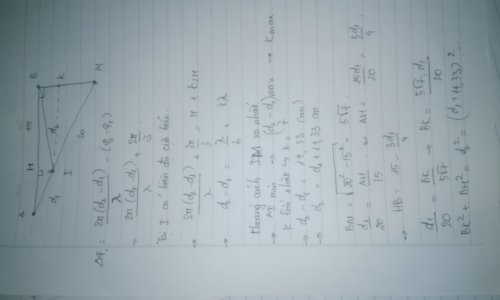 A
B
M
H
K
I
15
20
d₁
d₂
Δφ₁ = 2π(d₂-d₁)/λ - (φ₂-φ₁)
= 2π(d₂-d₁)/λ + 2π/3
Tại I có biên độ cực tiểu
→ 2π(d₂-d₁)/λ + 2π/3 = π + k2π
→ d₂-d₁ = λ/6 + kλ
Khoảng cách IM xa nhất
→ AI min → (d₂-d₁)max → kmax
k lớn nhất → k = 7
→ d₂-d₁ = 14,33 (cm)
→ d₂ = d₁+14,33 cm
BM = √20²-15² = 5√7
d₁/20 = AH/15 → AH = 15d₁/20 = 3d₁/4
→ HB = 15 - 3d₁/4
d₁/20 = BK/5√7 → BK = 5√7.d₁/20
BK²+BH² = d₂² = (d₁+14,33)²